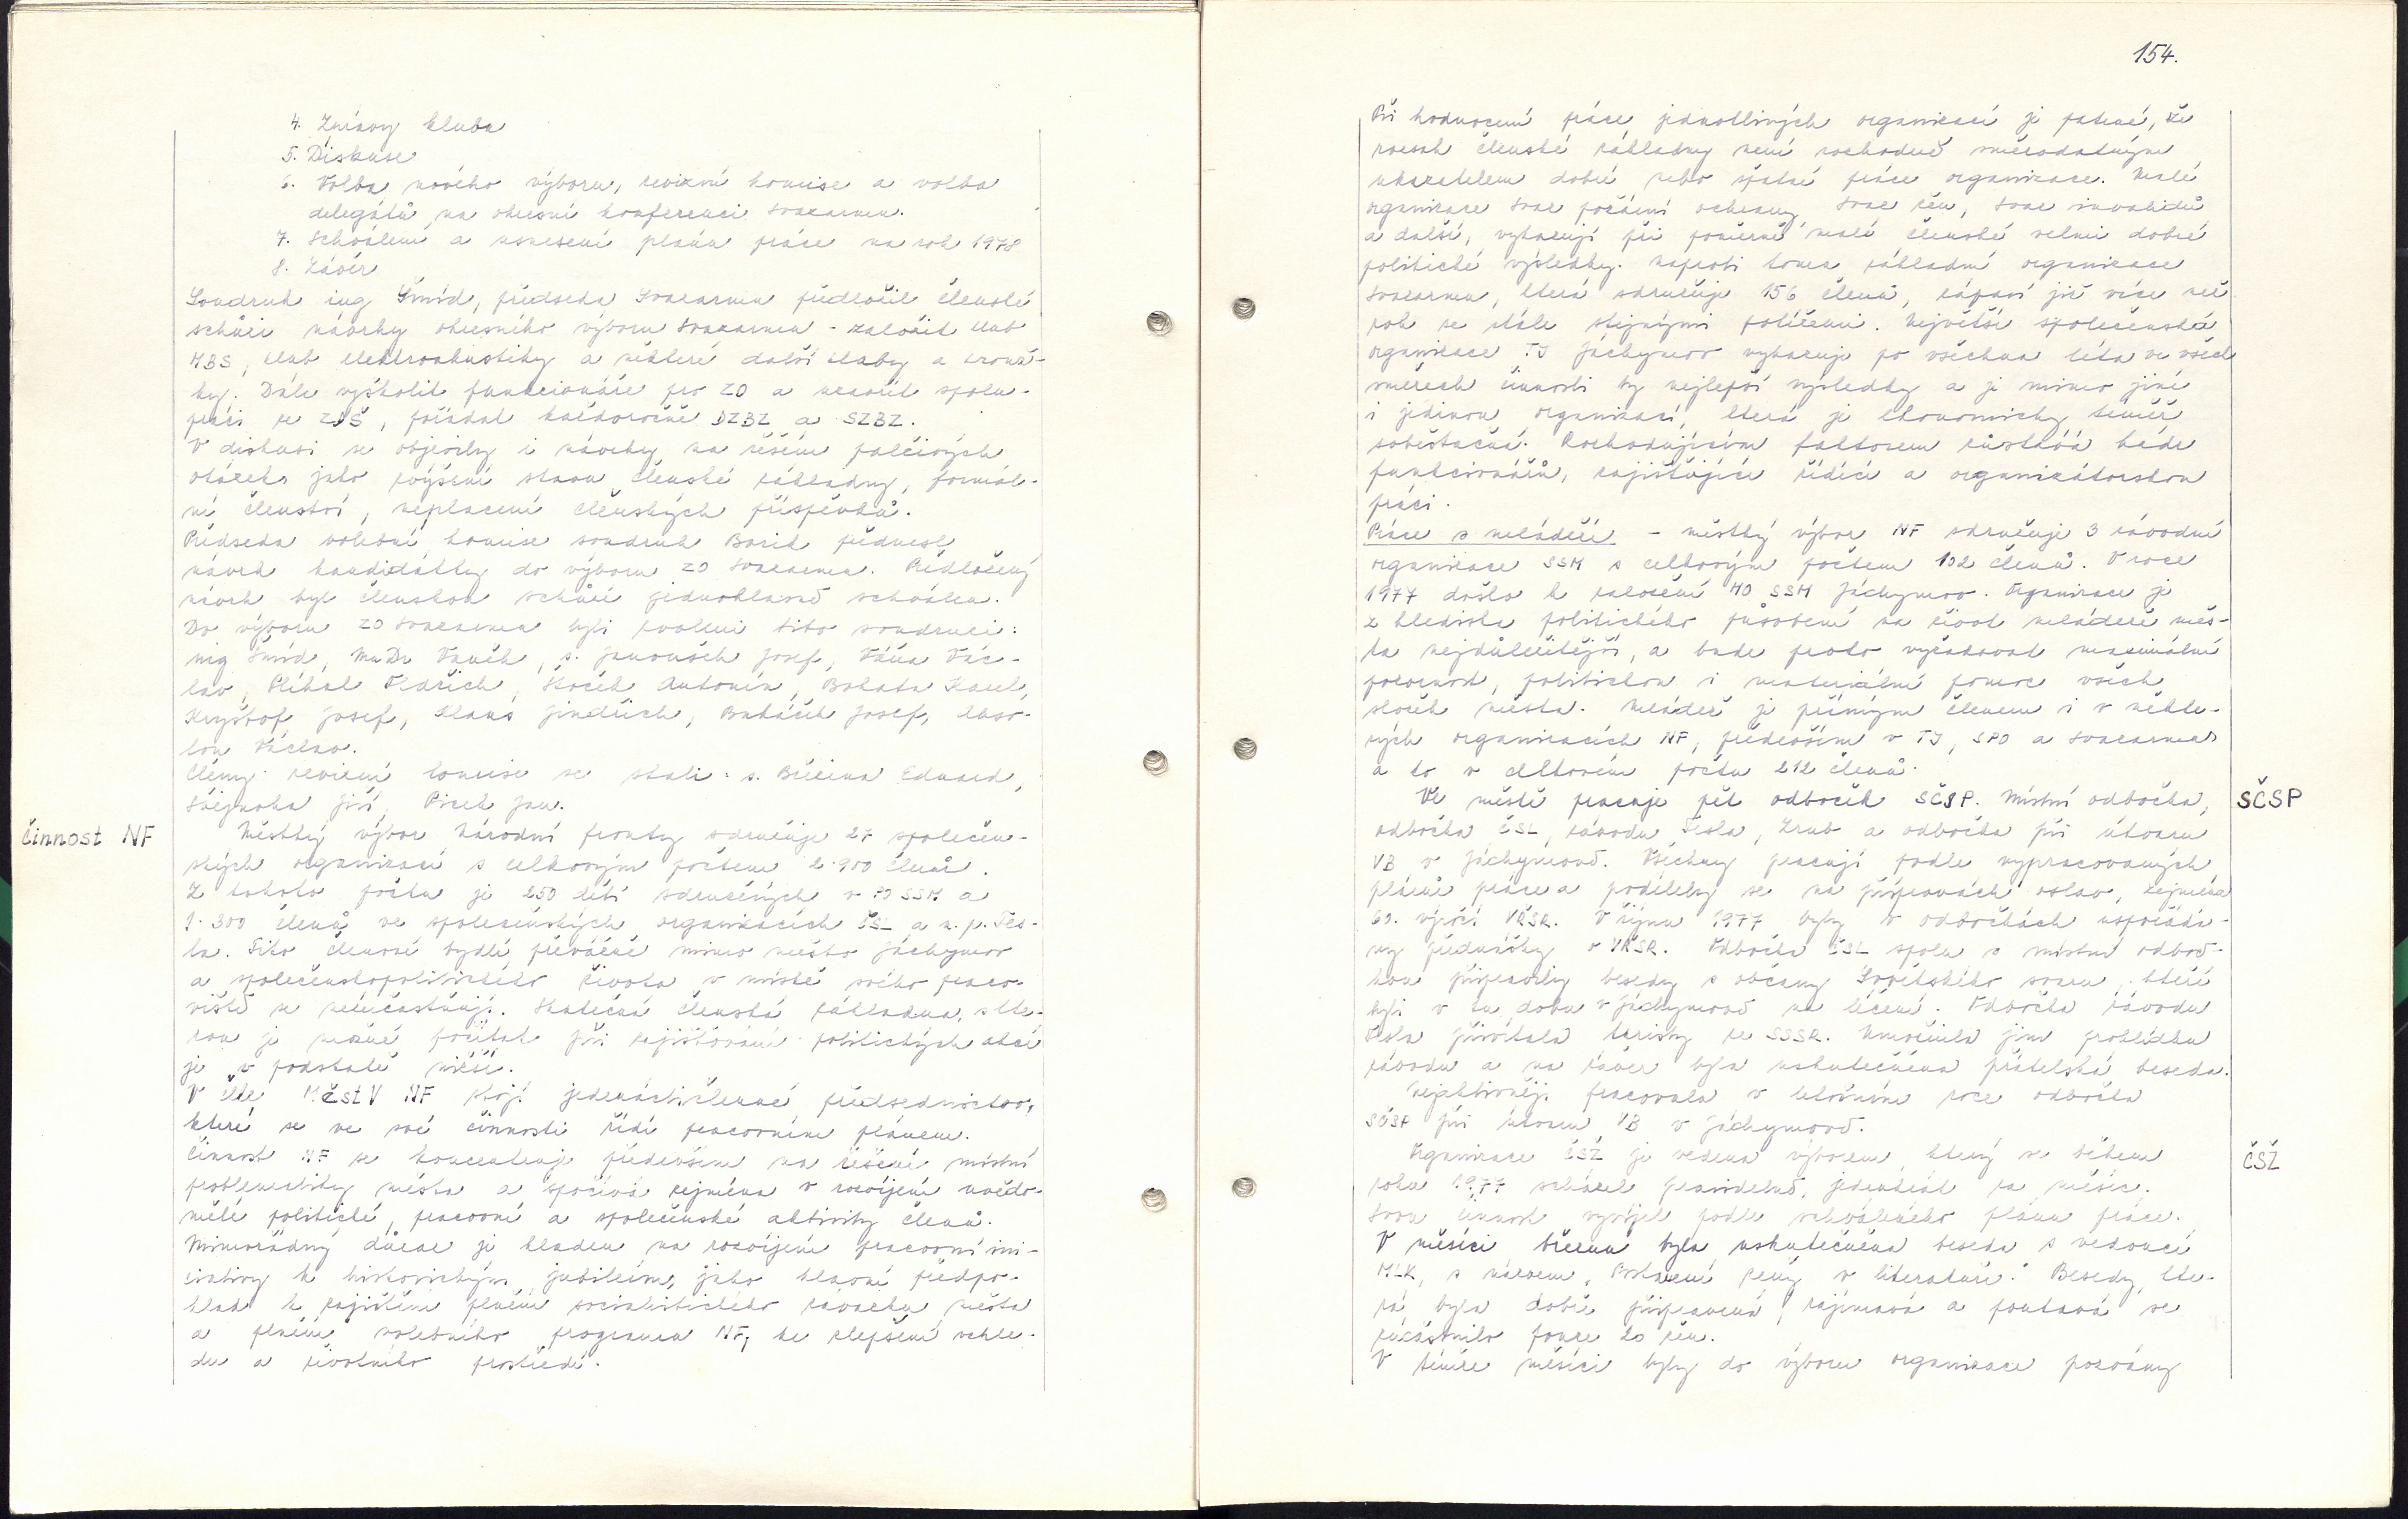 4. Zprávy klubů
5. Diskuse
6. Volba nového výboru, revizní komise a volba
delegátů na okresní konferenci Svazarmu.
7. Schválení a usnesení plánu práce na rok 1978
8. Závěr
Soudruh ing Šmíd, předseda Svazarmu předložil členské
schůzi návrhy okresního výboru Svazarmu - založit klub
MBS, klub elektroakustiky a některé další kluby a krouž-
ky. Dále vyškolit funkcionáře pro ZO a navázat spolu-
práci se ZDŠ, pořádat každoročně DZBZ a SZBZ.
V diskusi se objevily i návrhy na řešení palčivých
otázek jako zvýšení stavu členské základny, formál-
ní členství, neplacení členských příspěvků.
Předseda volební komise soudruh Bořik přednesl
návrh kandidátky do výboru ZO Svazarmu. Předložený
návrh byl členskou schůzí jednohlasně schválen.
Do výboru ZO Svazarmu byli zvoleni tito soudruzi:
ing Šmíd, MuDr Vaněk, s. Janoušek Josef, Váňa Vác-
lav, Plíhal Oldřich, Koček Antonín, Bohata Karel,
Kryštof Josef, Klaus Jindřich, Bubáček Josef,
Václav.
Členy revizní komise se stali: s. Březina Eduard,
Jiří, Picek Jan.
činnost NF
Městský výbor Národní fronty sdružuje 27 společen-
ských organizací s celkovým počtem 2.900 členů.
Z tohoto počtu je 250 dětí sdružených v PO SSM a
1.300 členů ve společenských organizacích ČSL a n.p. Tes-
la. Tito členové bydlí převážně mimo město Jáchymov
a společenskopolitického života v místě svého praco-
viště se nezúčastňují. Skutečná členská základna, s kte-
rou je možné počítat při zajišťování politických akcí
je v podstatě nižší.
V čele MěstV NF stojí jedenáctičlenné předsednictvo,
které se ve své činnosti řídí pracovním plánem.
Činnost NF se koncentruje především na řešení místní
problematiky města a spočívá zejména v rozvíjení uvědo-
mělé politické, pracovní a společenské aktivity členů.
Mimořádný důraz je kladen na rozvíjení pracovní ini-
ciativy k historickým jubileím, jako hlavní předpo-
klad k zajištění plnění socialistického závazku města
a plnění volebního programu NF, ke zlepšení vzhle-
du a životního prostředí.
154.
Při hodnocení práce jednotlivých organizací je patrné, že
rozsah členské základny není rozhodně směrodatným
ukazatelem dobré nebo špatné práce organizace. Malé
organizace Svaz požární ochrany, Svaz žen, Svaz invalidů
a další, vykazují při poměrně malé členské velmi dobré
politické výsledky. Naproti tomu základní organizace
Svazarmu, která sdružuje 156 členů, zápasí již více než
rok se stále stejnými potížemi. Největší společenská
organizace TJ Jáchymov vykazuje po všechna léta ve všech
směrech činnosti ty nejlepší výsledky a je mimo jiné
i jedinou organizací, která je ekonomicky téměř
soběstačná. Rozhodujícím faktorem zůstává kádr
funkcionářů, zajišťující řídící a organizátorskou
práci.
Práce s mládeží - městský výbor NF sdružuje 3 závodní
organizace SSM s celkovým počtem 102 členů. V roce
1977 došlo k založení MO SSM Jáchymov. Organizace je
z hlediska politického působení na život mládeže měs-
ta nejdůležitější, a bude proto vyžadovat maximální
pozornost, politickou i materiální pomoc všech
složek města. Mládež je přímým členem i v někte-
rých organizacích NF, především v TJ, SPO a Svazarmu
a to v celkovém počtu 212 členů.
SČSP
Ve městě pracuje pět odboček SČSP. Místní odbočka,
odbočka ČSL, závodu Tesla, Zrub a odbočka při útvaru
VB v Jáchymově. Všechny pracují podle vypracovaných
plánů práce a podílely se na přípravách oslav, zejména
60. výročí VŘSR. V říjnu 1977 byly v odbočkách uspořádá-
ny přednášky o VŘSR. Odbočka ČSL spolu s místní odboč-
kou připravily besedy s občany Sovětského svazu, kteří
byli v tu dobu v Jáchymově na léčení. Odbočka závodu
Tesla přivítala turisty ze SSSR. Umožnila jim prohlídku
závodu a na závěr byla uskutečněna přátelská beseda.
Nejaktivněji pracovala v letošním roce odbočka
SČSP při útvaru VB v Jáchymově.
ČSŽ
Organizace ČSŽ je vedena výborem, který se během
roku 1977 scházel pravidelně, jedenkrát za měsíc.
Svou činnost vyvíjel podle schváleného plánu práce.
V měsíci březnu byla uskutečněna beseda s vedoucí
MLK, s názvem „Postavení ženy v literatuře." Besedy, kte-
rá byla dobře připravená, zajímavá a poutavá se
zúčastnilo pouze 20 žen.
V témže měsíci byly do výboru organizace pozvány